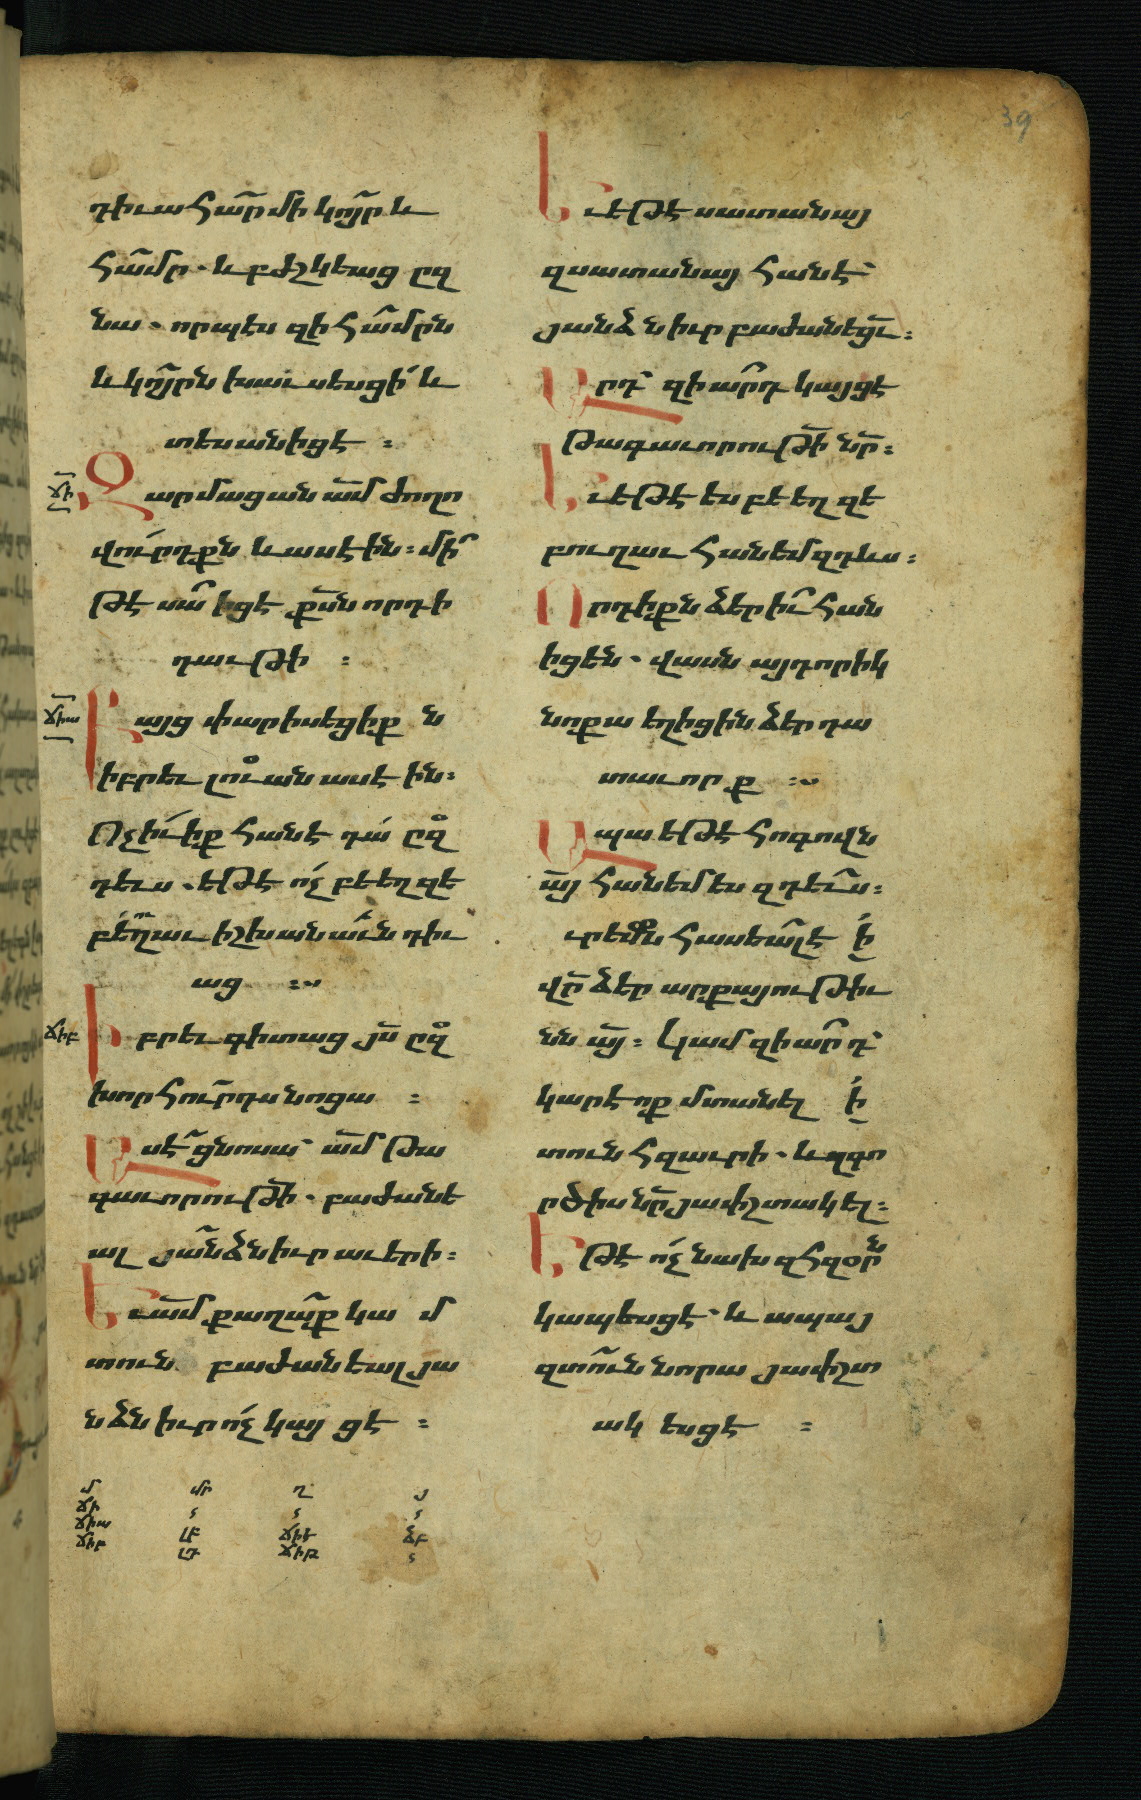 39
դիւահար մի կոյր և
համր. և բժշկեաց ըզ
նա. որպէս զի համրն
և կոյրն խաւսեսցի և
տեսանիցէ :
ճի
Զարմացան ամ ժողո
վուրդքն և ասէին: մի
թէ սա իցէ քսն որդի
դաւթի :
ճիա
Բայց փարիսեցիք ն
իբրև լուան ասէին:
Ոչ իւիք հանէ դա ըզ
դևս. եթէ ոչ բեեղզե
բեղաւ իշխանաւն դիւ
աց :
ճիբ
Իբրև գիտաց յս ըզ
խորհուրդս նոցա :
Ասէ ցնոսա ամ թա
գաւորութի. բաժանե
ալ յանձնիւր աւերի:
Եւ ամ քաղաք կամ
տուն բաժանեալ յա
նձնիւր ոչ կայցէ :
Եւ եթէ սատանայ
զսատանայ հանէ
յանձնիւր բաժանեցւ:
Արդ զիարդ կայցէ
թագաւորութի նր:
Եւ եթէ ես բեեղզե
բուղաւ հանեմ զդևս:
Որդիքն ձեր իւ հան
իցեն. վասն այդորիկ
նոքա եղիցին ձեր դա
տաւորք :
Ապա եթէ հոգովն
այ հանեմ ես զդևս:
ուրեմն հասեալ է ի
վր ձեր արքայութիւ
նն այ: Կամ զիարդ
կարէ ոք մտանել ի
տուն հզաւրի. և զգո
րծիս նր յափշտակել:
Եթէ ոչ նախ զհզօրն
կապեսցէ և ապայ
զտուն նորա յափշտ
ակեսցէ :
մ մր ղ յ
ճի
ճիա
ճիբ լբ ճիե ձբ
լդ ճիթ